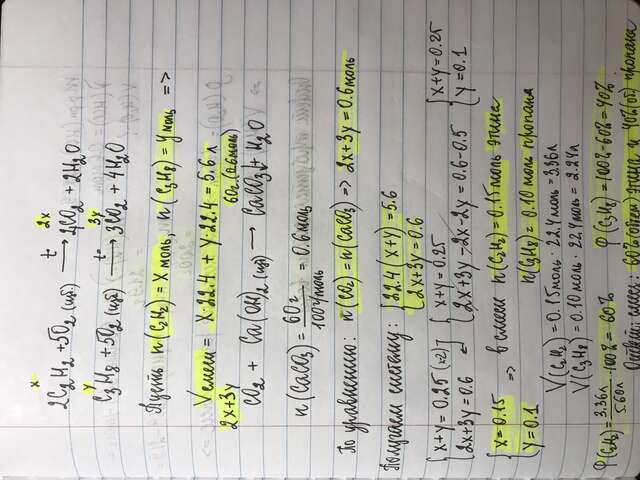 x 2x
2C₂H₂ + 5O₂ (изб.) —t→ 4CO₂ + 2H₂O
y 3x
C₃H₈ + 5O₂ (изб.) —t°→ 3CO₂ + 4H₂O
Пусть n(C₂H₂) = X моль, n(C₃H₈) = Y моль =>
V смеси = X·22.4 + Y·22.4 = 5.6 л
2x+3y 60г.(0.6моль)
CO₂ + Ca(OH)₂ (изб) → CaCO₃↓ + H₂O
n(CaCO₃) = 60г / 100г/моль = 0.6 моль
По уравнению: n(CO₂) = n(CaCO₃) => 2x+3y = 0.6 моль
Получаем систему: { 22.4(x+y) = 5.6
2x+3y = 0.6
{ x+y = 0.25 (×2) { x+y = 0.25 { x+y = 0.25
2x+3y = 0.6 2x+3y-2x-2y = 0.6-0.5 y = 0.1
{ x = 0.15 => в смеси n(C₂H₂) = 0.15 моль этина
y = 0.1 n(C₃H₈) = 0.10 моль пропана
V(C₂H₂) = 0.15 моль · 22.4 моль = 3.36л
V(C₃H₈) = 0.10 моль · 22.4 моль = 2.24л
φ(C₂H₂) = 3.36л / 5.60л · 100% = 60% φ(C₃H₈) = 100%-60% = 40%
Ответ: смесь: 60% (объем) этина и 40% (об.) пропана